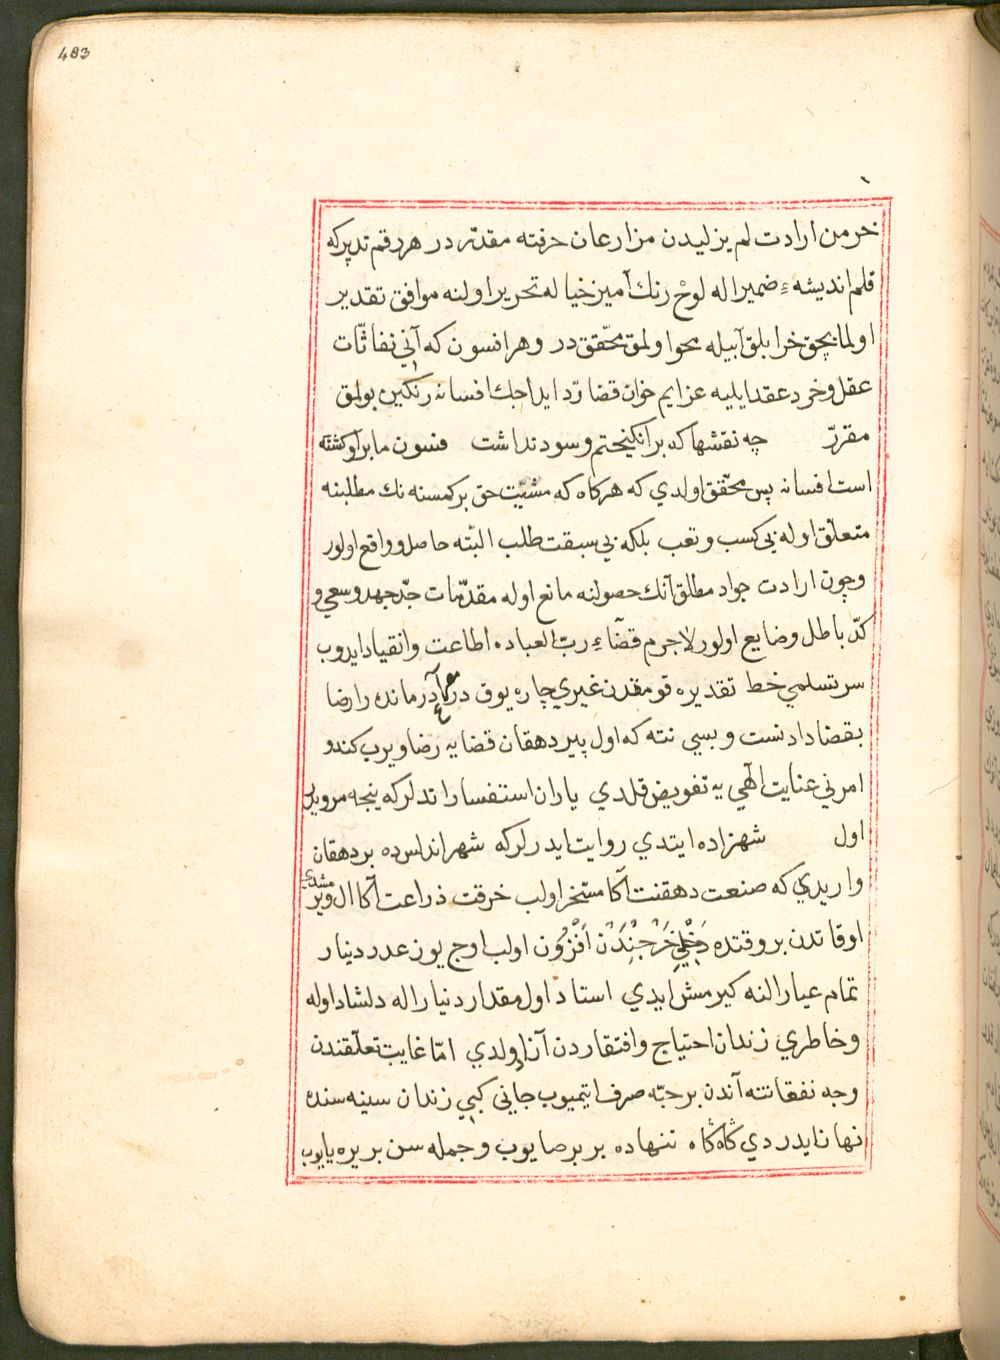 483
خرمن ارادت لم يزليدن مزارعان حرفته مقدّر در هر رقم تدبير كه
قلم انديشهٔ ضمير اله لوح رنك آميز خياله تحرير اولنه موافق تقدير
اولمايجق خرابلق آبيله محو اولمق محقّق در وهر افسون كه آني نفاثّات
عقل وخرد عقد ايليه عزايم خوان قضا ردّ ايداجك افسانه رنكين بولمق
مقررّ چه نقشها كه برانكيختم وسود نداشت فسون ما بر او كشته
است افسانه پس محقّق اولدي كه هركاه كه مشيّت حق بر كمسنه نك مطلبنه
متعلّق اوله بي كسب وتعب بلكه بي سبقت طلب البتّه حاصل وواقع اولور
وچون ارادت جواد مطلق آنك حصولنه مانع اوله مقدّمات جدّ جهد وسعي و
كدّ باطل وضايع اولور لاجرم قضآءِ ربّ العباده اطاعت وانقياد ايدوب
سر تسلمي خط تقديره قومقدن غيري چاره يوق در مع آدر مانده را رضا
بقضا دادنست وبسي نته كه اول پير دهقان قضايه رضا ويرب كندو
امرني عنايت آلهي يه تفويض قلدي ياران استفسار اندلر كه نيجه مرويدر
اول شهزاده ايتدي روايت ايدرلر كه شهر اندلس ده بر دهقان
وار يدي كه صنعت دهقنت آكا مسخّر اولب خرقت ذراعت آكا ال ويرمشدي
اوقاتدن بر وقتده دَخْلِي خَرْجِنْدَنْ اَفْزُون اولب اوج يوز عدد دينار
تمام عيار النه كيرمش ايدي استاد اول مقدار دينار اله دلشاد اوله
وخاطري زندان احتياج وافتقاردن آزاد اولدي امّا غايت تعلّقندن
وجه نفقاتنه آندن بر حبّه صرف ايتميوب جاني كبي زندان سينه سنده
نهان ايدردي كاه كاه تنهاده بر بر صايوب وجمله سن بر يره يايوب